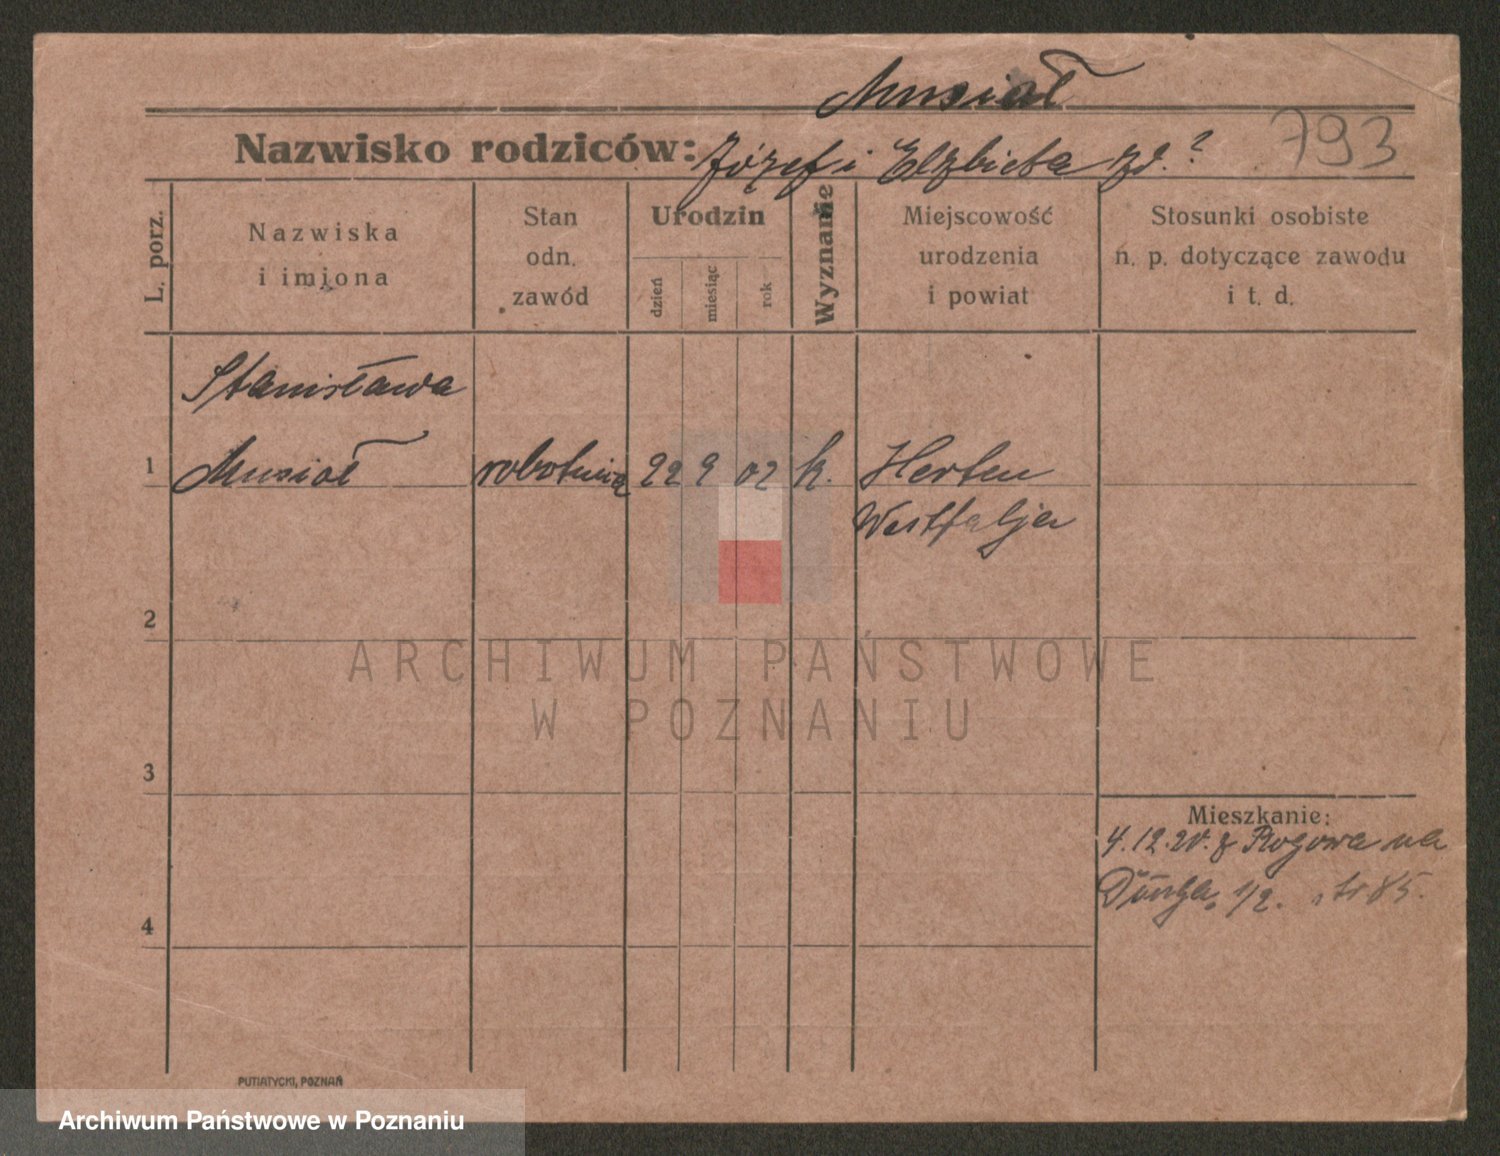 Musiał
Nazwisko rodziców: Józef i Elżbieta zd. ?
793
L. porz.
Nazwiska
i imiona
Stan
odn.
zawód
Urodzin
dzień
miesiąc
rok
Wyznanie
Miejscowość
urodzenia
i powiat
Stosunki osobiste
n. p. dotyczące zawodu
i t. d.
Stanisława
1 Musiał robotnica 22 9 02 k. Herten
Westfalja
2
ARCHIWUM PAŃSTWOWE
W POZNANIU
3
Mieszkanie:
4.12.20. z Rogowa na
1/2. str 85.
4
PUTIATYCKI, POZNAŃ
Archiwum Państwowe w Poznaniu